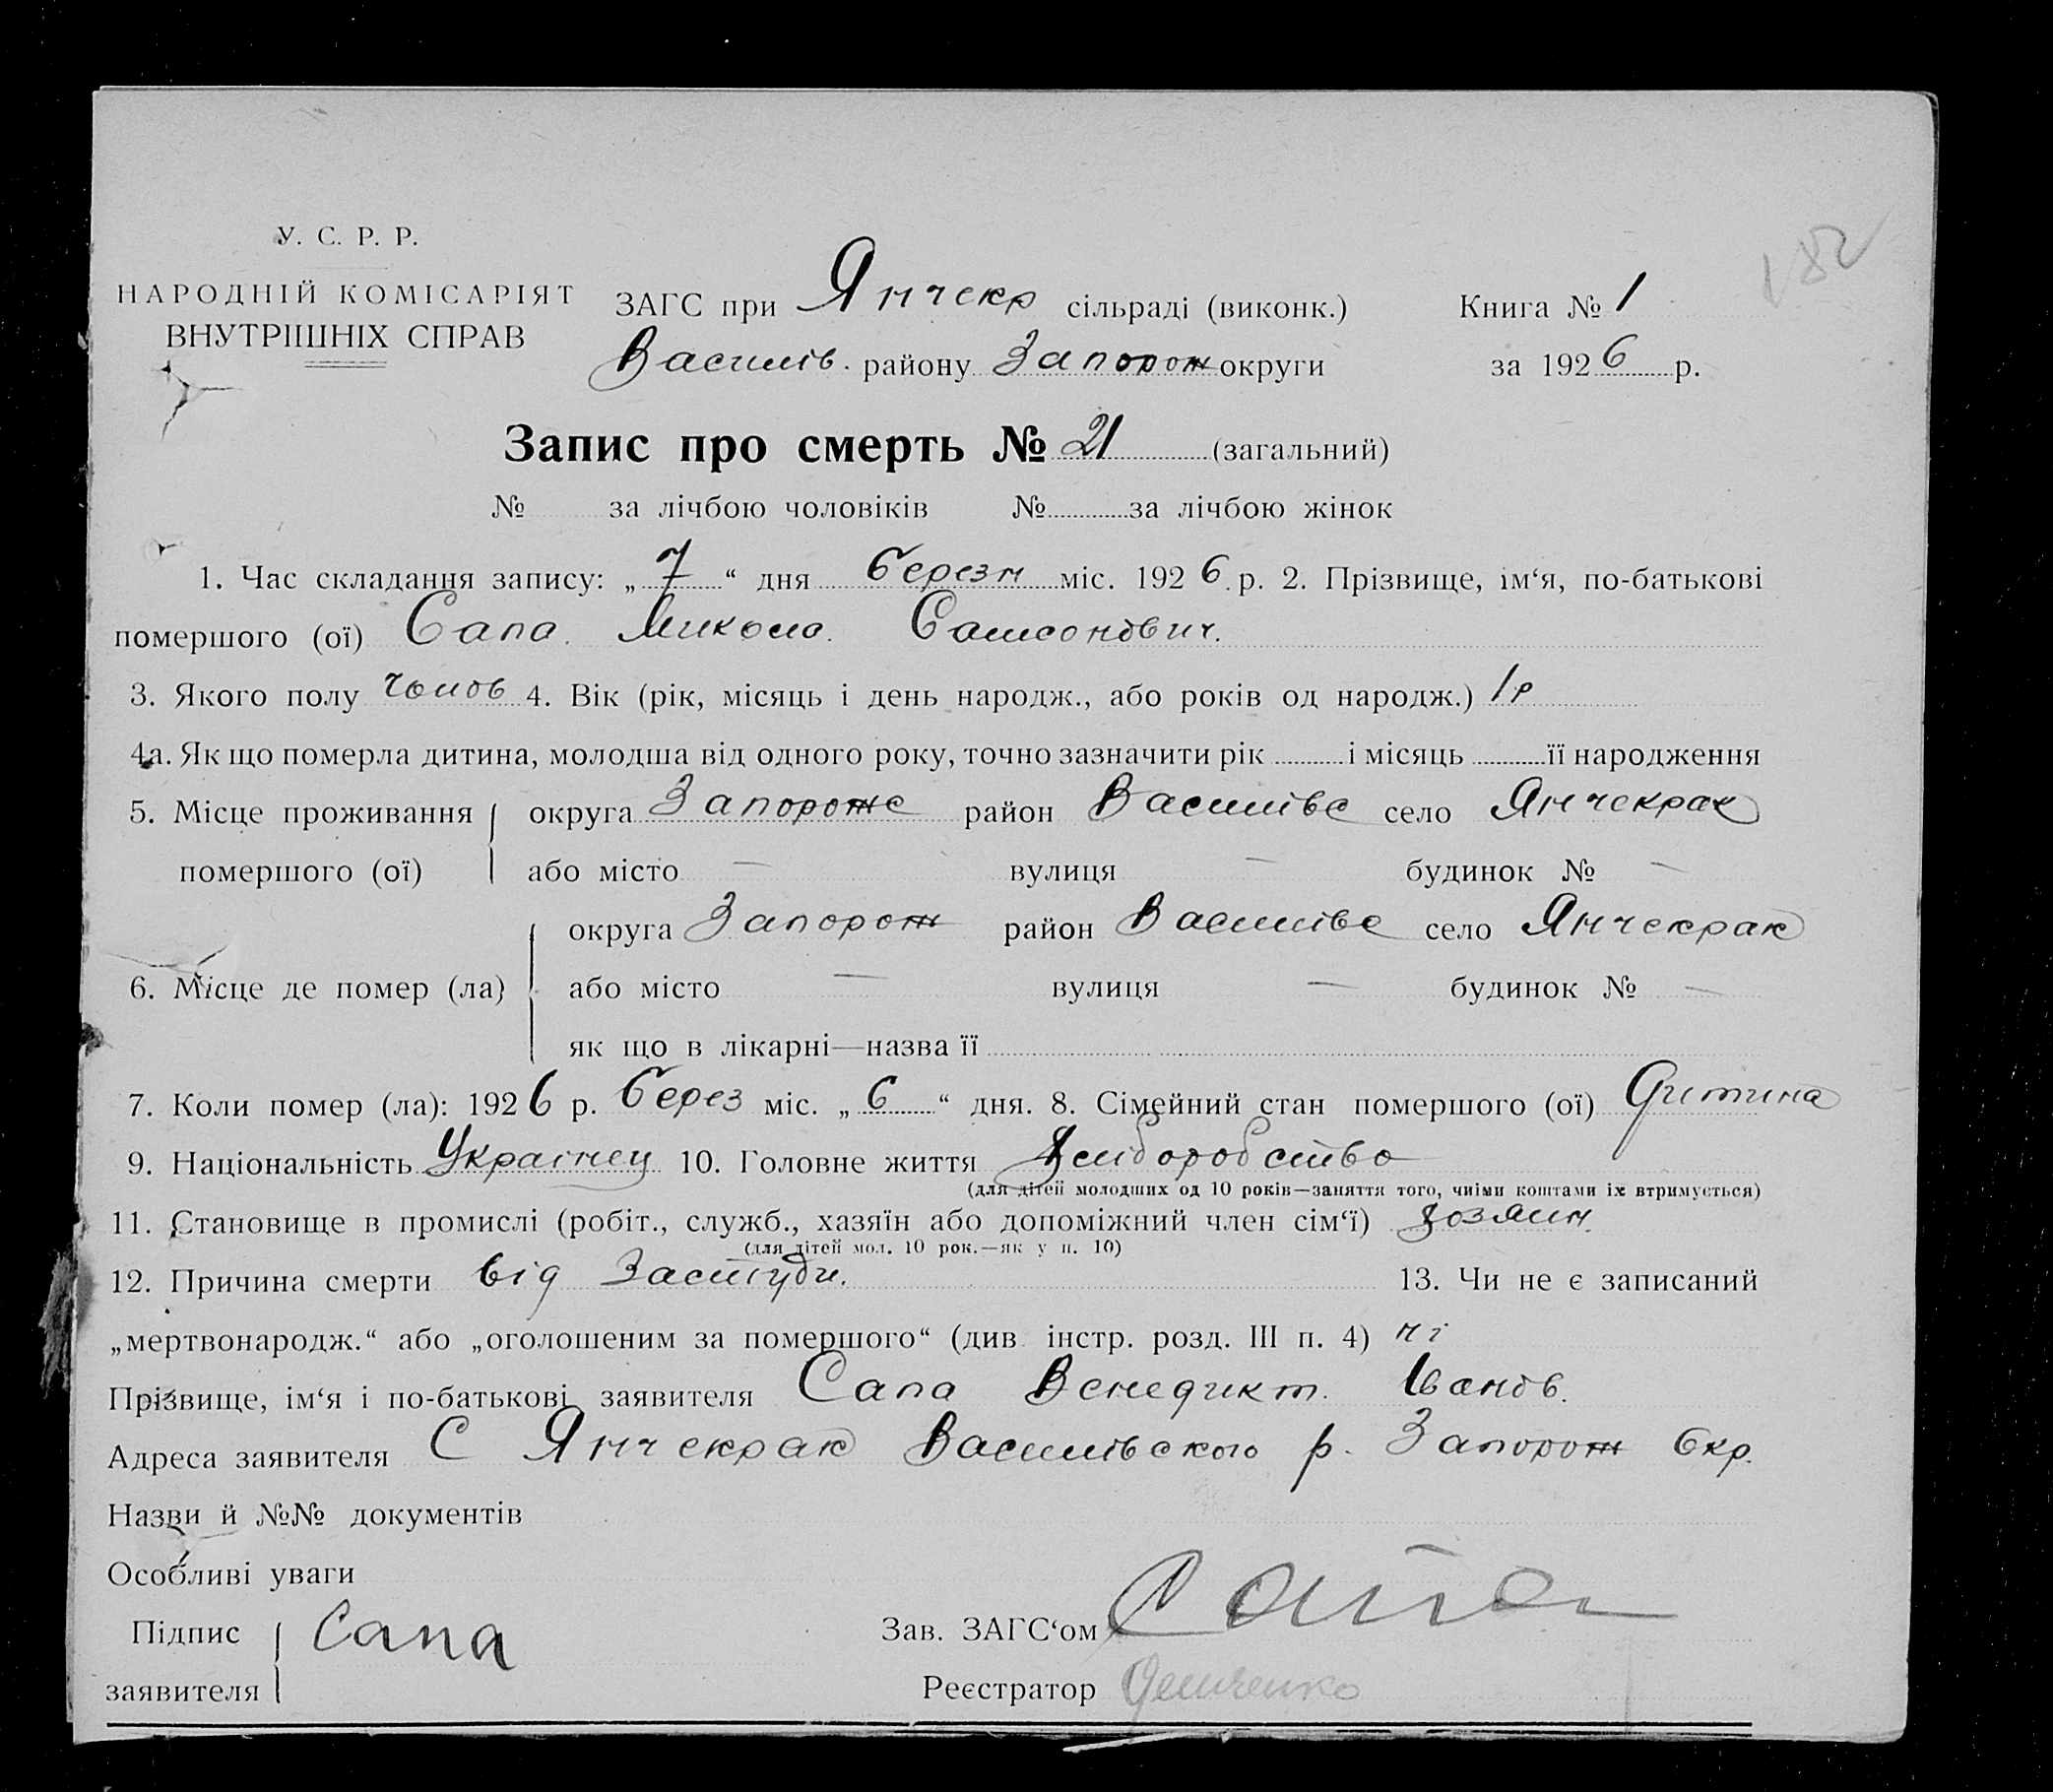 182
У. С. Р. Р.
НАРОДНІЙ КОМІСАРІЯТ
ВНУТРІШНІХ СПРАВ
ЗАГС при Янчекр сільраді (виконк.) Книга № 1
Василів. району Запорож округи за 1926 р.
Запис про смерть № 21 (загальний)
№ за лічбою чоловіків № за лічбою жінок
1. Час складання запису: „7“ дня березн міс. 1926 р. 2. Прізвище, ім‘я, по-батькові
помершого (ої) Сапа Микола Самсонович.
3. Якого полу чолов 4. Вік (рік, місяць і день народж., або років од народж.) 1р
4а. Як що померла дитина, молодша від одного року, точно зазначити рік і місяць її народження
5. Місце проживання округа Запорожс район Василівс село Янчекрак
помершого (ої) або місто — вулиця — будинок № —
округа Запорож район Василівс село Янчекрак
6. Місце де помер (ла) або місто — вулиця — будинок № —
як що в лікарні—назва її
7. Коли помер (ла): 1926 р. берез міс. „6“ дня. 8. Сімейний стан помершого (ої) дитина
9. Національність Украінец 10. Головне життя Хліборобство
(для дітей молодших од 10 років—заняття того, чиїми коштами їх втримується)
11. Становище в промислі (робіт., служб., хазяїн або допоміжний член сім‘ї) хозяин
(для дітей мол. 10 рок.—як у п. 10)
12. Причина смерти від Застуди. 13. Чи не є записаний
„мертвонародж.“ або „оголошеним за помершого“ (див. інстр. розд. III п. 4) ні
Прізвище, ім‘я і по-батькові заявителя Сапа Венедикт Іванов.
Адреса заявителя С Янчекрак Василівского р. Запорож Окр.
Назви й №№ документів
Особливі уваги
Підпис Сапа Зав. ЗАГС‘ом
заявителя Реєстратор Демченко